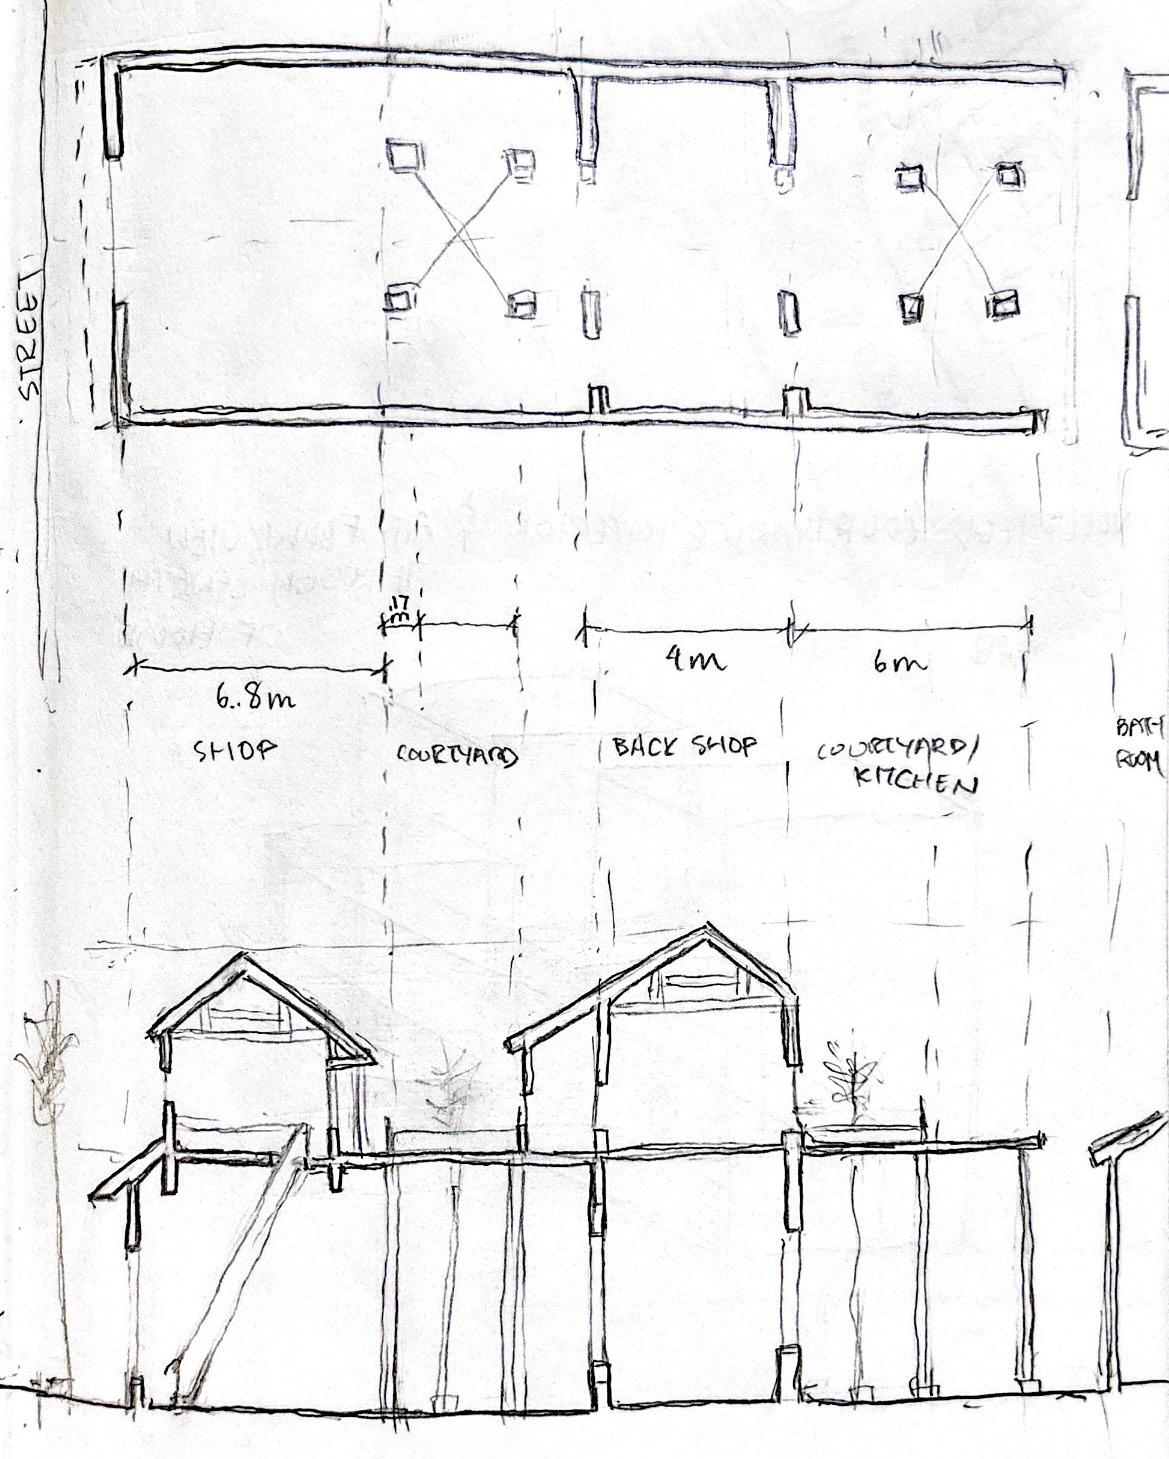 STREET
.17
m
6.8m
4m
6m
SHOP
COURTYARD
BACK SHOP
COURTYARD/
KITCHEN
BATH
ROOM